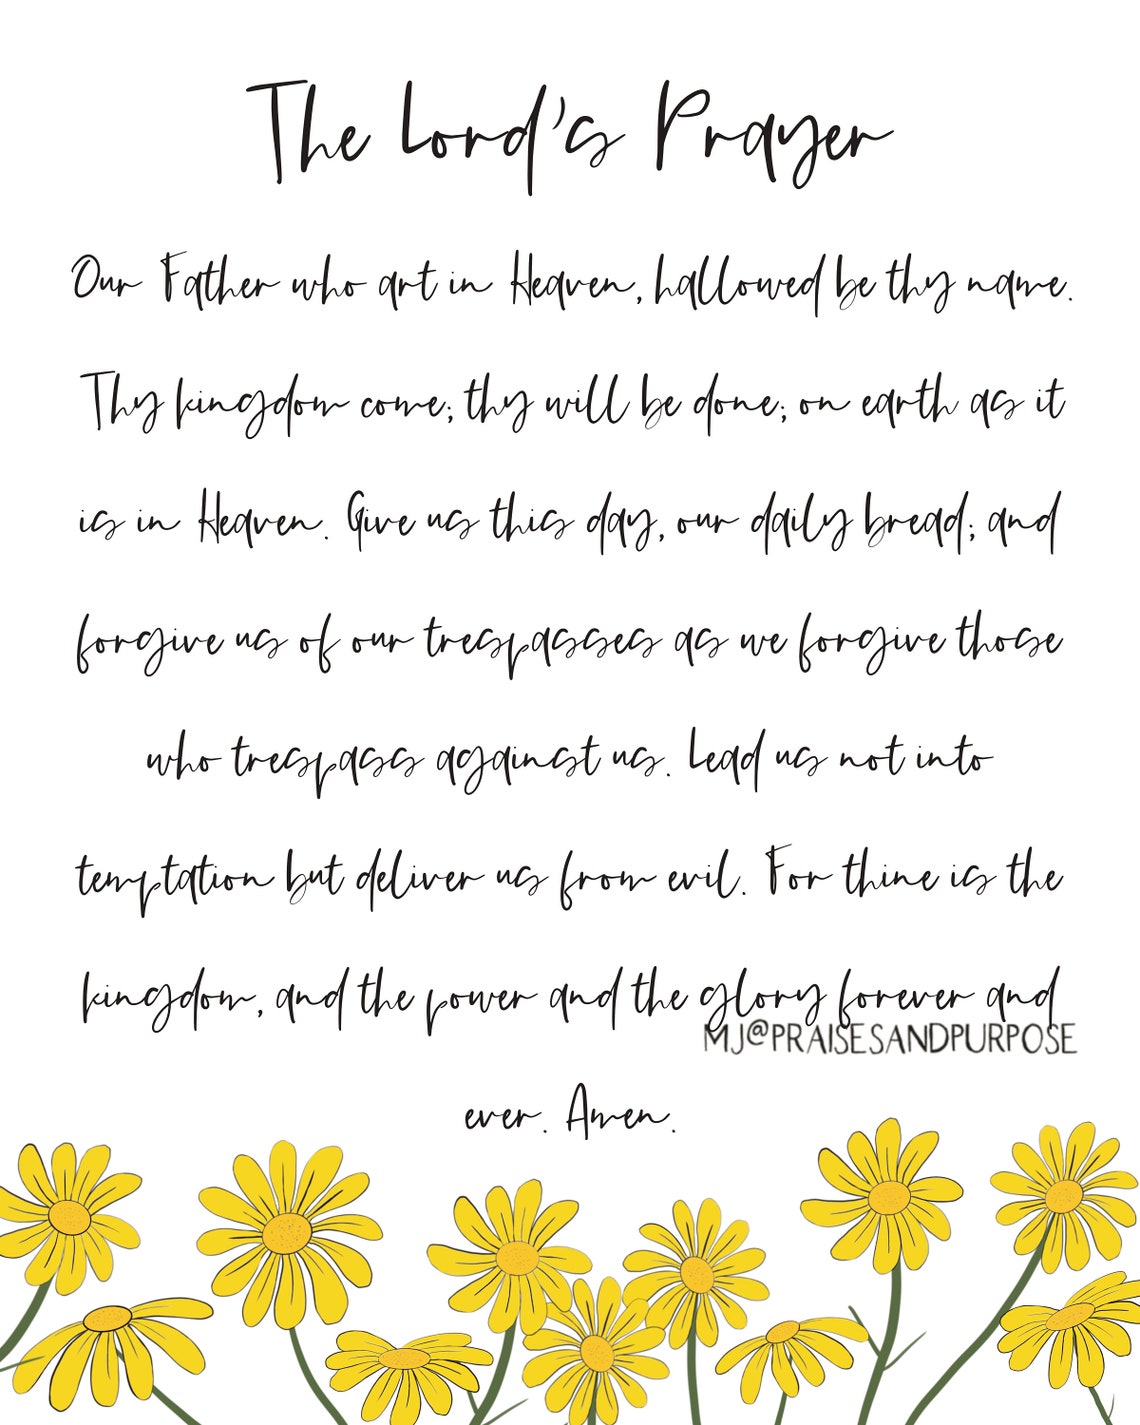 The Lord's Prayer
Our Father who art in Heaven, hallowed be thy name.
Thy kingdom come; thy will be done; on earth as it
is in Heaven. Give us this day, our daily bread; and
forgive us of our trespasses as we forgive those
who trespass against us. Lead us not into
temptation but deliver us from evil. For thine is the
kingdom, and the power and the glory forever and
MJ@PRAISESANDPURPOSE
ever. Amen.